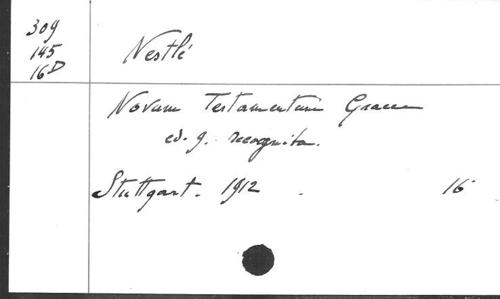 309
145
16D
Nestlé
Novum Testamentum Graece
ed. 9. recognita.
Stuttgart. 1912. 16